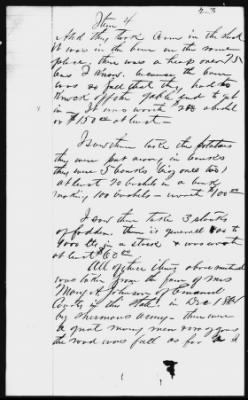 Item 4
And they took Corn in the shuck
it was in the barn on the same
place, there was a heap over 75
bus I know. because the barn
was so full that they had to
knock off the gable end to get
in - It was worth $2.00 a bushel
or $150.00 at least -
I saw them take the potatoes
they were put away in banks
they were 5 banks (big ones too)
at least 20 bushels in a bank
making 100 bushels - worth $100.00
I saw them take 3 stacks
of fodder. there is generall 800 to
1000 lbs in a stack & was worth
at least $60.00
All of these items above mentioned
was taken from the farm of Mrs
Mary A Johnson of Emanuel
County in this State in Dec 1864
by Shermans army - there were
a great many men & wagons
the road was full as far as I